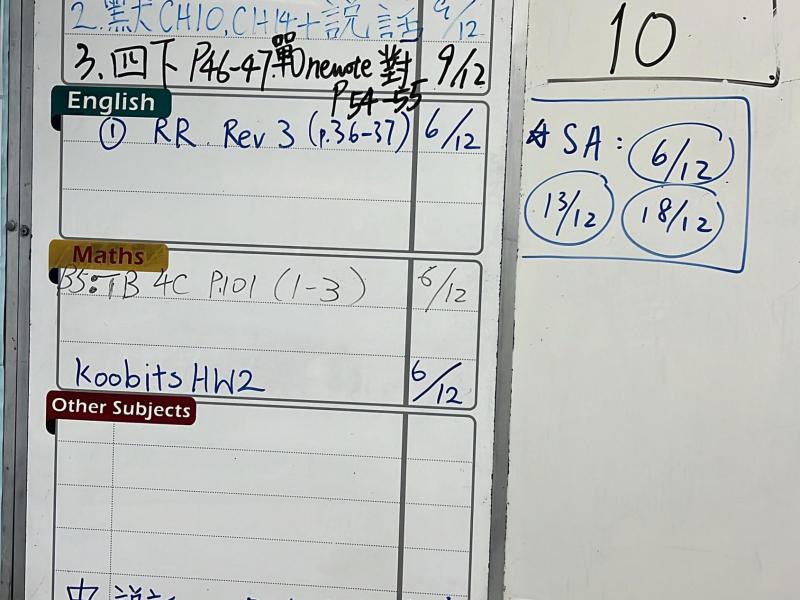 2. 黑大 CH10, CH14+說話 9/12
3. 四下 P46-47 戰 onenote 對 9/12
P54-55
English
① RR Rev 3 (p.36-37) 6/12
Maths
B5: TB 4C P.101 (1-3) 6/12
Koobits HW2 6/12
Other Subjects
中 說話
10
☆ SA: 6/12
13/12 18/12